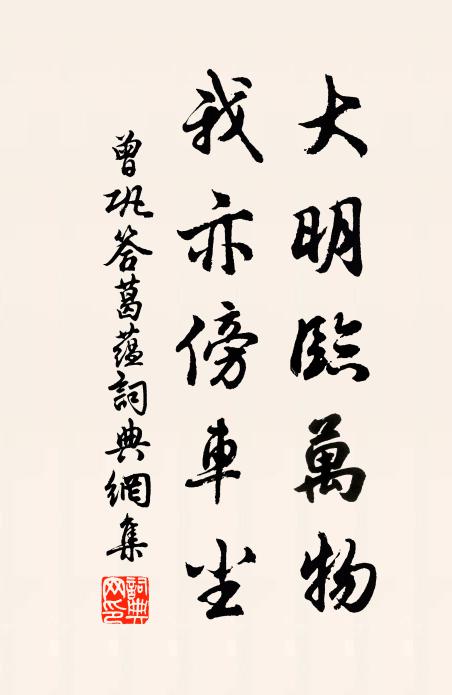 大明臨萬物
我亦傍車尘
曾巩答葛蕴詞典網集
詞典网印